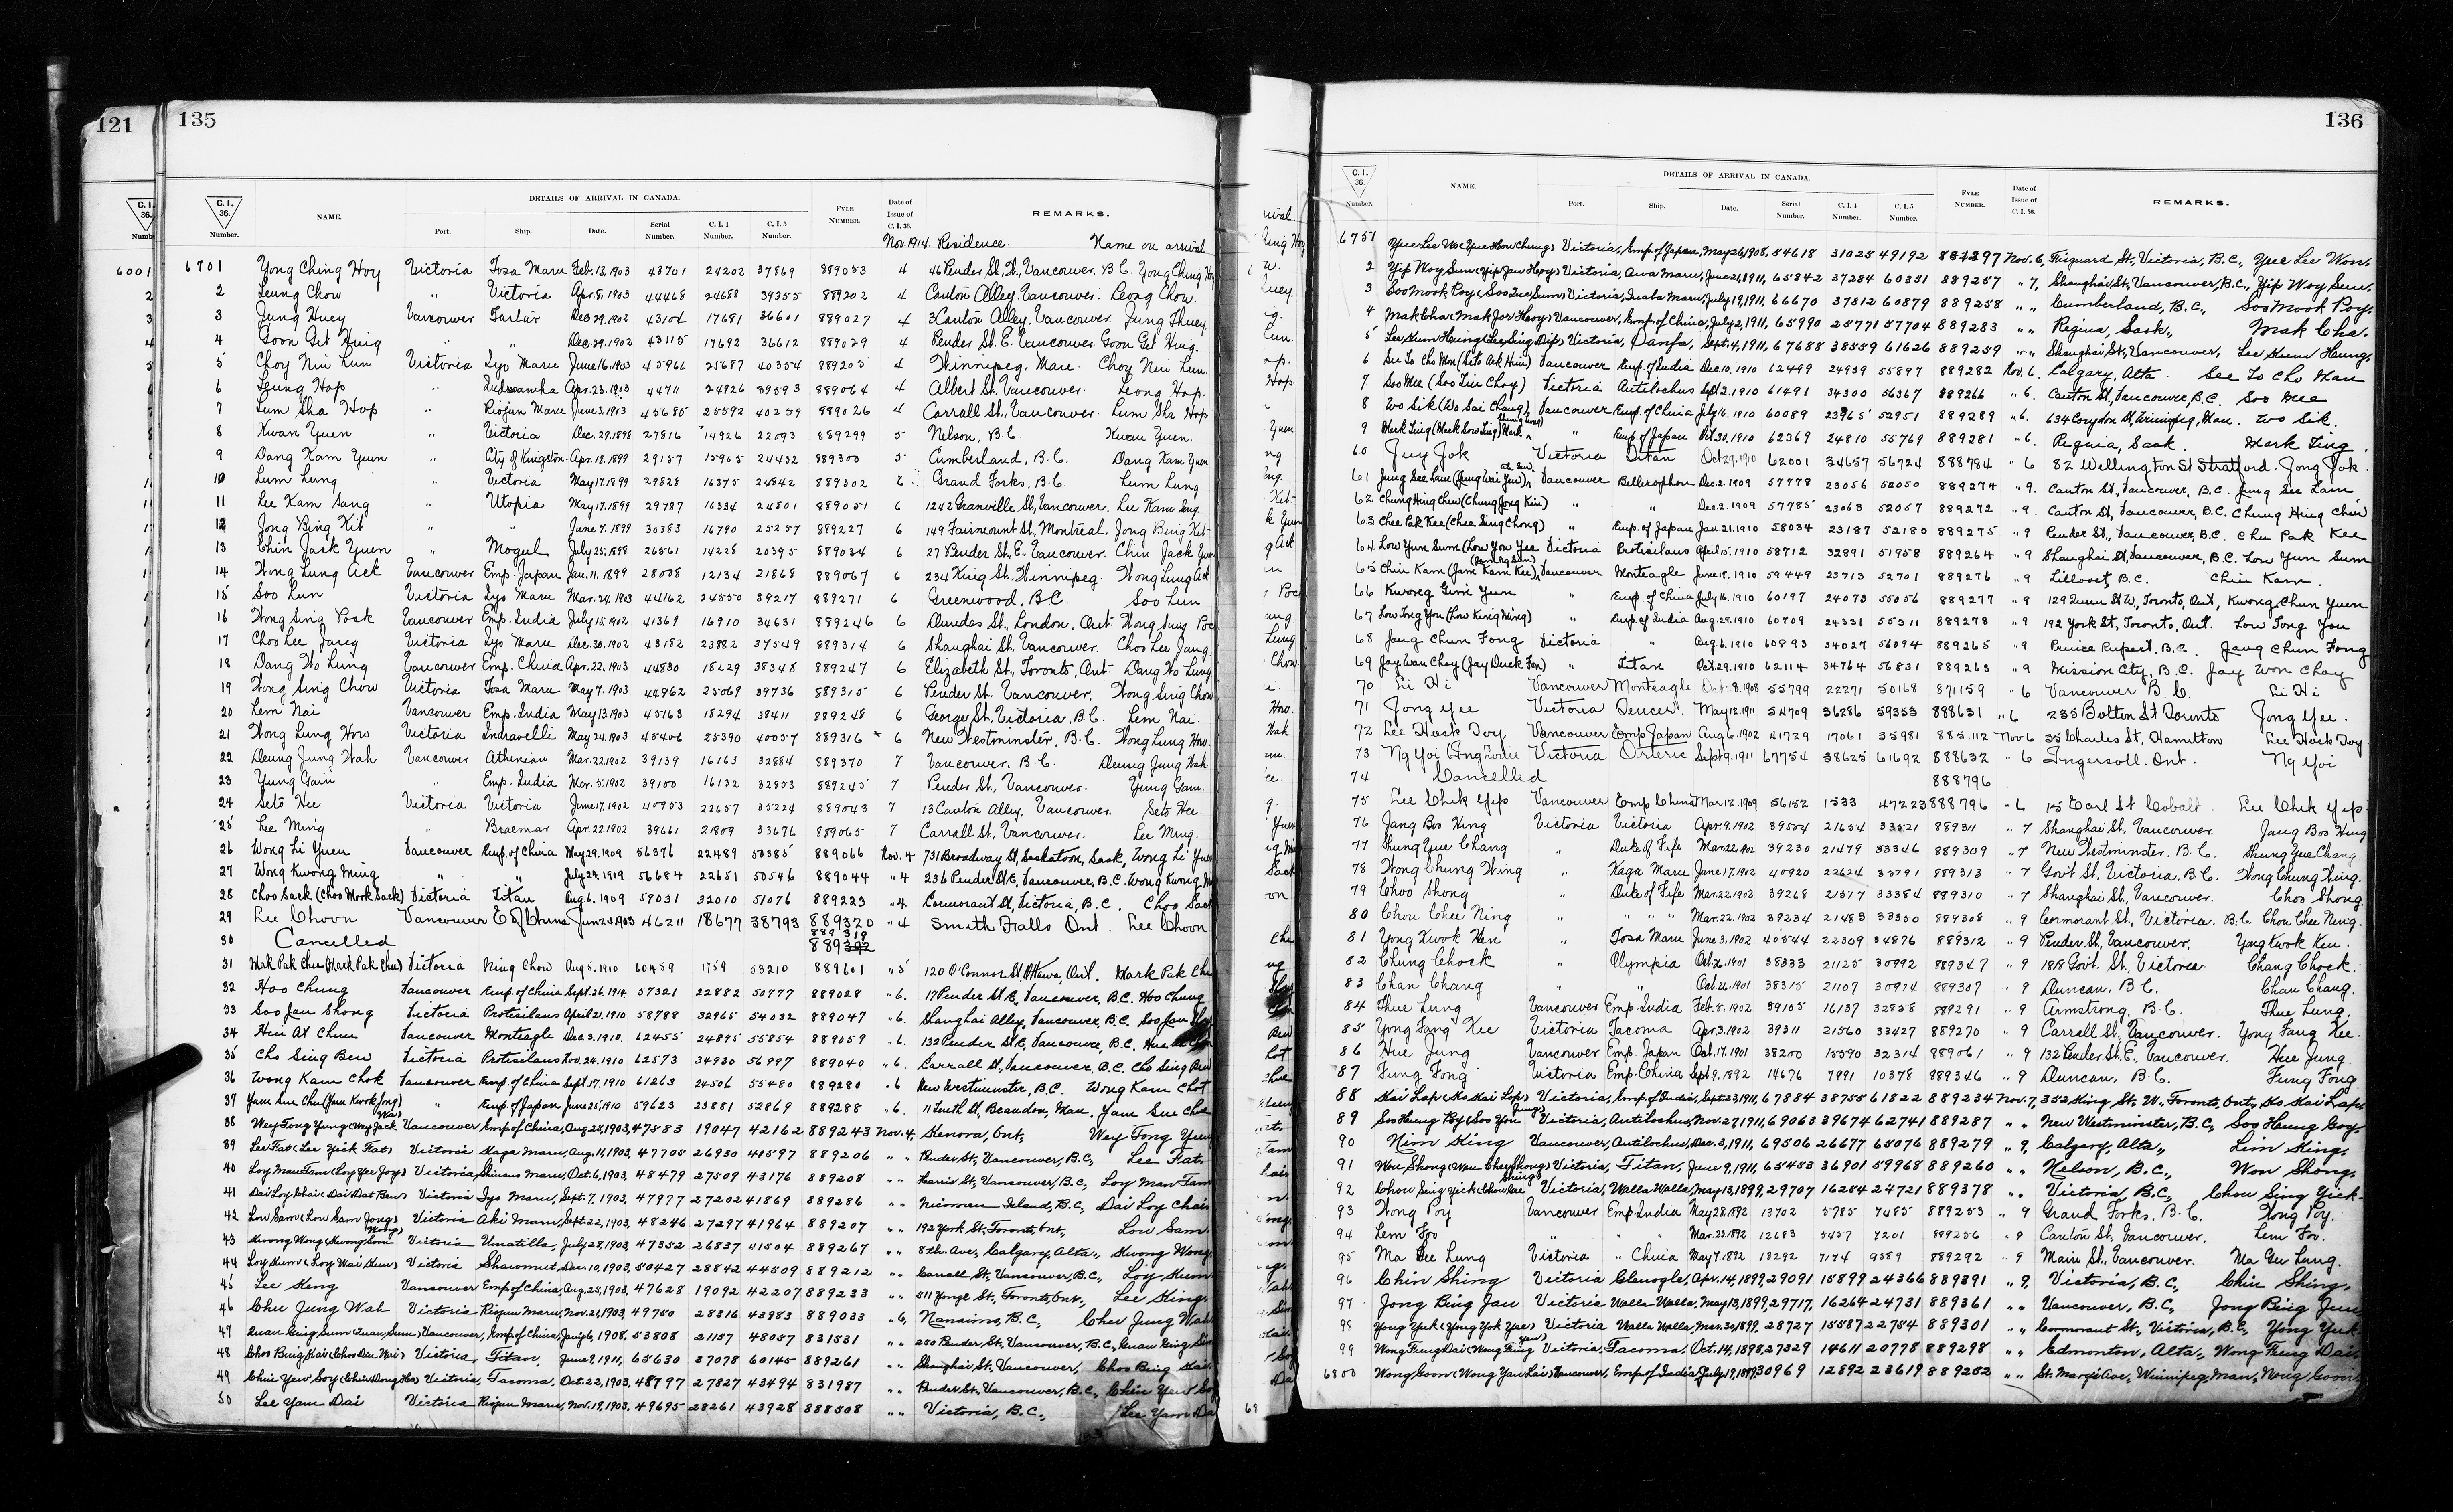 121
135
C.I. 36. Number.
NAME.
DETAILS OF ARRIVAL IN CANADA.
Port. Ship. Date. Serial Number. C.I.4 Number. C.I.5 Number.
FYLE NUMBER.
Date of Issue of C.I.36.
REMARKS.
Nov. 1914. Residence. Name on arrival
6001
6701 Yong Ching Hoy Victoria Tosa Maru Feb. 13. 1903 43701 24202 37869 889053 4 46 Pender St. W., Vancouver. B.C. Yong Ching Hoy
2 Leung Chow " Victoria Apr. 8. 1903 44468 24688 39355 889202 4 Canton Alley. Vancouver. Leong Chow.
3 Jung Huey Vancouver Tartar Dec. 29. 1902 43104 17681 36601 889027 4 3 Canton Alley. Vancouver. Jung Thuey
4 Goon Git Hing " " Dec. 29. 1902 43115 17692 36612 889029 4 Pender St. E. Vancouver. Goon Get Hing.
5 Choy Nin Lun Victoria Iyo Maru June 16. 1903 45966 25687 40354 889205 4 Winnipeg, Man. Choy Nin Lun.
6 Leung Hop " Apr. 23. 1903 44711 24926 39593 889064 4 Albert St. Vancouver. Leong Hop.
7 Lum Sha Hop " Riojun Maru June 3. 1903 45685 25592 40259 889026 4 Carrall St., Vancouver. Lum Sha Hop
8 Kwan Yuen " Victoria Dec. 29. 1898 27816 14926 22093 889299 5 Nelson, B.C. Kwan Yuen.
9 Dang Kam Yuen " City of Kingston Apr. 18. 1899 29157 15965 24432 889300 5 Cumberland, B.C. Dang Kam Yuen
10 Lum Lung " Victoria May 17. 1899 29828 16375 24842 889302 6 Grand Forks, B.C. Lum Lung
11 Lee Kam Sang " Utopia May 17. 1899 29787 16334 24801 889051 6 1242 Granville St, Vancouver. Lee Kam Sng.
12 Jong Bing Kit " " June 7. 1899 30383 16790 25257 889227 6 149 Fairmount St, Montreal. Jong Bing Kit
13 Chin Jack Yuen " Mogul July 25, 1898 26561 14228 20395 889034 6 27 Pender St, E. Vancouver. Chin Jack Yuen
14 Wong Lung Ack Vancouver Emp. Japan Jan. 11. 1899 28008 12134 21868 889067 6 234 King St, Winnipeg. Wong Lung Ack
15 Soo Lun Victoria Iyo Maru Mar. 24. 1903 44162 24550 39217 889271 6 Greenwood, B.C. Soo Lun
16 Wong Sing Pock Vancouver Emp. India July 15. 1902 41369 16910 34631 889246 6 Dundas St., London, Ont. Wong Sing Poc
17 Choo Lee Jang Victoria Iyo Maru Dec. 30. 1902 43182 22882 37549 889314 6 Shanghai St, Vancouver. Choo Lee Jang.
18 Dang Wo Lung Vancouver Emp. China Apr. 22. 1903 44830 18229 38348 889247 6 Elizabeth St, Toronto, Ont. Dang Wo Lung
19 Wong Sing Chow Victoria Tosa Maru May 7. 1903 44962 25069 39736 889315 6 Pender St. Vancouver. Wong Sing Chow
20 Lem Nai Vancouver Emp. India May 13. 1903 45163 18294 38411 889248 6 George St. Victoria, B.C. Lem Nai
21 Wong Lung How Victoria Indravelli May 24. 1903 45406 25390 40057 889316 6 New Westminster, B.C. Wong Lung How.
22 Deung Jung Wah Vancouver Athenian Mar. 22. 1902 39139 16163 32884 889370 7 Vancouver. B.C. Deung Jung Wah
23 Yung Gain " Emp. India Mar. 5. 1902 39100 16132 32853 889245 7 Pender St., Vancouver. Yung Gam.
24 Seto Hee Victoria Victoria June 17. 1902 40953 22657 35224 889043 7 13 Canton Alley, Vancouver. Seto Hee.
25 Lee Ming " Braemar Apr. 22. 1902 39661 21809 33676 889065 7 Carrall St, Vancouver. Lee Ming.
26 Wong Li Yuen Vancouver Emp. of China May 29. 1909 56376 22489 50385 889066 Nov. 4 731 Broadway St, Saskatoon, Sask, Wong Li Yuen
27 Wong Kwong Ming " " July 29. 1909 56684 22651 50546 889044 " 4 236 Pender St E, Vancouver, B.C. Wong Kwong M
28 Choo Sack (Choo Mork Sack) Victoria Titan Aug. 6. 1909 57031 32010 51076 889223 " 4 Cormorant St, Victoria, B.C. Choo Sack
29 Lee Choon Vancouver E of China Jun 24 1903 46211 18677 38793 889320 " 4 Smith Falls Ont. Lee Choon
30 Cancelled 889 319
31 Mak Pak Chu (Mark Pak Chu) Victoria Ning Chow Aug 5. 1910 60459 1759 53210 889601 " 5 120 O'Connor St, Ottawa, Ont. Mark Pak Chu
32 Hoo Chung Vancouver Emp. of China Sept. 26. 1914 57321 22882 50777 889028 " 6. 17 Pender St E, Vancouver, B.C. Hoo Chung
33 Soo Jan Shong Victoria Protesilaus April 21. 1910 58788 32965 54032 889047 " 6. Shanghai Alley, Vancouver, B.C. Soo Jan
34 Hui At Chun Vancouver Monteagle Dec. 3. 1910. 62455 24895 55854 889059 " 6. 132 Pender St E, Vancouver, B.C.
35 Cho Sing Bew Victoria Protesilaus Nov. 24. 1910 62573 34930 56997 889040 " 6. Carrall St, Vancouver, B.C. Cho Sing Bew
36 Wong Kam Chok Vancouver Emp. of China Sept. 17. 1910 61263 24506 55480 889280 " 6 New Westminster, B.C. Wong Kam Chot
37 Yam Sue Chu (Yam Kwok Jong) " Emp. of Japan June 25, 1910 59623 23881 52869 889288 " 6. 11 Louth St, Brandon, Man. Yam Sue Chu
38 Wey Tong Yung (Wey Jack Wai) Vancouver Emp of China, Aug 28, 1903, 47583 19047 42162 889243 Nov. 4, Kenora, Ont, Wey Tong Yun
39 Lee Fat (Lee Yick Fat) Victoria Kaga Maru, Aug. 11, 1903, 47705 26930 41597 889206 " " Pender St, Vancouver, B.C., Lee Fat.
40 Loy Man Tam (Loy Yee Joy) Victoria, Shinano Maru, Oct. 6, 1903, 48479 27509 43176 889208 " " Harris St, Vancouver, B.C., Loy Man Tam
41 Dai Loy Chai (Dai Dat Bew) Victoria Iyo Maru, Sept. 7, 1903, 47977 27202 41869 889286 " " Nicomen Island, B.C., Dai Loy Chai
42 Low Sam (Low Sam Jong) Victoria Aki Maru, Sept. 22, 1903, 48246 27297 41964 889207 " " 192 York St, Toronto, Ont., Low Sam.
43 Kwong Wong (Kwong Som Mong) Victoria Umatilla, July 28, 1903, 47352 26837 41504 889267 " " 8th. Ave, Calgary, Alta., Kwong Wong
44 Loy Kum (Loy Wai Kum) Victoria Shawmut, Dec. 10, 1903, 50427 28842 44509 889212 " " Carrall St, Vancouver, B.C., Loy Kum
45 Lee King Vancouver Emp of China, Aug. 25, 1903, 47628 19092 42207 889233 " " 511 Yonge St., Toronto, Ont., Lee King.
46 Chu Jung Wah Victoria Riojun Maru, Nov. 21, 1903, 49750 28316 43983 889033 " 6, Nanaimo, B.C., Chu Jung Wah
47 Quan Quing Sum (Quan Sum) Vancouver, Emp of China, Jan 6, 1908, 53808 21157 48057 831531 " " 250 Pender St, Vancouver, B.C., Quan King Sum
48 Choo Bing Kai (Choo Din Wai) Victoria, Titan, June 9, 1911, 65630 37078 60145 889261 " " Shanghai St, Vancouver, Choo Bing Kai.
49 Chin Yew Soy (Chin Dong Ho) Victoria, Tacoma, Oct. 22, 1903, 48797 27827 43494 831987 " " Pender St, Vancouver, B.C., Chin Yew Soy
50 Lee Yam Dai Victoria Riojun Maru, Nov. 19, 1903, 49695 28261 43928 888508 " " Victoria, B.C., Lee Yam Da
136
C.I. 36. Number.
NAME.
DETAILS OF ARRIVAL IN CANADA.
Port. Ship. Date. Serial Number. C.I.4 Number. C.I.5 Number.
FYLE NUMBER.
Date of Issue of C.I.36.
REMARKS.
6751 Yue Lee Wo (Yue How Chung) Victoria, Emp. of Japan, May 26, 1908, 54618 31025 49192 Nov. 6, Fisguard St, Victoria, B.C., Yue Lee Won.
2 Yip Woy Sum (Yip Jan Hoy) Victoria, Awa Maru, June 21, 1911, 65842 37284 60351 889257 " 7, Shanghai St, Vancouver, B.C., Yip Woy Sum.
3 Soo Mook Poy (Soo Sum) Victoria, Inaba Maru, July 19, 1911, 66670 37812 60879 889258 " " Cumberland, B.C., Soo Mook Poy.
4 Mak Cha (Mak Jor Hoy) Vancouver, Emp. of China, July 2, 1911, 65990 25771 57704 889283 " " Regina, Sask., Mak Cha.
5 Lee Kum Heung (Lee Sing Dip) Victoria, Panfa, Sept. 4, 1911, 67688 38559 61626 889259 " " Shanghai St, Vancouver, Lee Kum Heung.
6 See To Cho Mon (Seto Ark Him) Vancouver Emp of India Dec. 10. 1910 62499 24939 55897 889282 Nov. 6. Calgary, Alta. See To Cho Man
7 Soo Mee (Soo Lin Choy) Victoria Antilochus Sept 2. 1910 61491 34300 56367 889266 " 6. Canton St, Vancouver, B.C. Soo Mee
8 Wo Sik (Wo Sai Chang) Vancouver Emp. of China July 16. 1910 60089 23965 52951 889289 " 6. 634 Corydon St, Winnipeg, Man. Wo Sik.
9 Mark Ling (Mark Sow Ling) Mark " Emp. of Japan Oct. 30. 1910 62369 24810 55769 889281 " 6. Regina, Sask. Mark Ling.
60 Juy Jok Victoria Titan Oct 29. 1910 62001 34657 56724 888784 " 6 82 Wellington St Stratford. Jong Jok.
61 Jung See Lam (Jung Wai Yew) Vancouver Bellerophon Dec. 2. 1909 57778 23056 52050 889274 " 9. Canton St, Vancouver, B.C. Jung See Lam.
62 Chung Hing Chew (Chung Jong Kin) " " Dec. 2. 1909 57785 23063 52057 889272 " 9. Canton St, Vancouver, B.C. Chung Hing Chew
63 Chee Pak Kee (Chee Sing Chong) " Emp. of Japan Jan. 21. 1910 58034 23187 52180 889275 " 9 Pender St., Vancouver, B.C. Chu Pak Kee
64 Low Yun Sum (Low You Yee Victoria Protesilaus April 15. 1910 58712 32891 51958 889264 " 9 Shanghai St, Vancouver, B.C. Low Yun Sum
65 Chin Kam (Jam Kam Kee) Vancouver Monteagle June 18. 1910 59449 23713 52701 889276 " 9 Lillooet, B.C. Chin Kam.
66 Kwong Gim Yun " Emp. of China July 16. 1910 60197 24073 55056 889277 " 9 129 Queen St W, Toronto, Ont, Kwong Chun Yuen
67 Low Tong You (Low King Ming) " Emp. of India Aug. 29. 1910 60709 24331 55311 889278 " 9 192 York St, Toronto, Ont. Low Tong You
68 Jang Chun Fong Victoria " Aug. 6. 1910 60893 34027 56094 889265 " 9 Prince Rupert, B.C. Jang Chun Fong
69 Jay Wan Choy (Jay Duck Fon) " Titan Oct. 29. 1910 62114 34764 56831 889263 " 9 Mission City, B.C. Jay Won Choy
70 Li Hi Vancouver Monteagle Oct. 8. 1908 55799 22271 50168 871159 " 6 Vancouver B.C. Li Hi
71 Jong Yee Victoria Teucer. May 12. 1911 54709 36286 59353 888631 " 6 235 Bolton St Toronto Jong Yee.
72 Lee Hock Toy Vancouver Emp Japan Aug 6. 1902 41729 17061 35981 885112 Nov 6 35 Charles St, Hamilton Lee Hock Toy.
73 Ng Yoi Victoria Orteric Sept 9. 1911 67754 38625 61692 888632 " 6 Ingersoll. Ont. Ng Yoi
74 Cancelled 888796
75 Lee Chik Yip Vancouver Emp China Mar 12. 1909 56152 1533 47223 888796 " 6 15 Earl St Cobalt. Lee Chik Yip
76 Jang Boo King Victoria Victoria Apr. 9. 1902 39504 21654 33521 889311 " 7 Shanghai St. Vancouver Jang Boo Hing
77 Shung Yue Chang " Duke of Fife Mar. 22. 1902 39230 21479 33346 889309 " 7 New Westminster. B.C. Shung Yue Chang
78 Wong Chung Wing " Kaga Maru June 17. 1902 40920 22624 35791 889313 " 7 Gov't St. Victoria, B.C. Wong Chung Wing.
79 Choo Shong " Duke of Fife Mar. 22. 1902 39268 21517 33384 889310 " 7 Shanghai St, Vancouver. Choo Shong
80 Chou Chee Ning " " " " Mar. 22. 1902 39234 21483 33350 889308 " 9 Cormorant St, Victoria. B.C. Chou Chee Ning.
81 Yong Kwok Ken " Tosa Maru June 3. 1902 40544 22309 34876 889312 " 9 Pender St, Vancouver. Yong Kwok Ken.
82 Chung Chock " Olympia Oct. 26. 1901 38333 21125 30992 889347 " 9 1818 Gov't. St., Victoria. Chang Chock.
83 Chan Chang " " Oct. 26. 1901 38315 21107 30974 889307 " 9 Duncan, B.C. Chan Chang.
84 Thue Lung Vancouver Emp. India Feb. 8. 1902 39105 16137 32858 889291 " 9 Armstrong, B.C. Thue Lung.
85 Yong Fang Kee Victoria Tacoma Apr. 3. 1902 39311 21560 33427 889270 " 9 Carrall St. Vancouver. Yong Fang Kee.
86 Hue Jung Vancouver Emp. Japan Oct. 17. 1901 38200 15590 32314 889061 " 9 132 Pender St, E. Vancouver. Hue Jung.
87 Fung Fong Victoria Emp. China Sept 9. 1892 14676 7991 10378 889346 " 9 Duncan, B.C. Fung Fong.
88 Kai Lap (Ko Kai Lap) Victoria, Emp. of India, Sept. 23, 1911, 67884 38755 61822 889234 Nov. 7, 352 King St. W., Toronto, Ont., Ko Kai Lap.
89 Soo Heung Poy (Soo You Jung) Victoria, Antilochus, Nov. 27, 1911, 69063 39674 62741 889287 " " New Westminster, B.C., Soo Heung Goy.
90 Nim King Vancouver, Antilochus, Dec. 3, 1911, 69506 26677 65076 889279 " 9, Calgary, Alta., Lim King.
91 Wou Shong (Wou Chey Shong) Victoria, Titan, June 9, 1911, 65453 36901 59968 889260 " " Nelson, B.C., Won Shong.
92 Chow Sing Yick (Chow Lee Shing) Victoria, Walla Walla, May 13, 1899, 29707 16254 24721 889378 " " Victoria, B.C., Chou Sing Yick
93 Wong Poy Vancouver Emp. India May 28. 1892 13702 5785 7485 889253 " 9 Grand Forks, B.C. Wong Poy.
94 Lem Foo " " " Mar. 23. 1892 12683 5457 7201 889256 " 9 Canton St, Vancouver. Lem Foo.
95 Ma Gee Lung Victoria " China May 7. 1892 13292 7174 9589 889292 " 9 Main St., Vancouver. Ma Gee Lung.
96 Chin Shing Victoria Glenogle, Apr. 14, 1899, 29091 15899 24366 889391 " 9, Victoria, B.C., Chin Shing.
97 Jong Bing Jau Victoria Walla Walla, May 13, 1899, 29717, 16264 24731 889361 " " Vancouver, B.C., Jong Bing Jun
98 Yong Yuk (Yong Yok Yae) Victoria Walla Walla, Mar. 30, 1899, 28727 15587 22754 889301 " " Cormorant St., Victoria, B.C., Yong Yuk
99 Wong Fung Dai (Wong Fing Yau) Victoria, Tacoma, Oct. 14, 1898, 27329 14611 20778 889298 " " Edmonton, Alta., Wong Fung Dai.
6800 Wong Goon (Wong Yau Lai) Vancouver, Emp. of India, July 19, 1899, 30969 12892 23619 889252 " " St. Mary's Ave, Winnipeg, Man., Wong Goon.